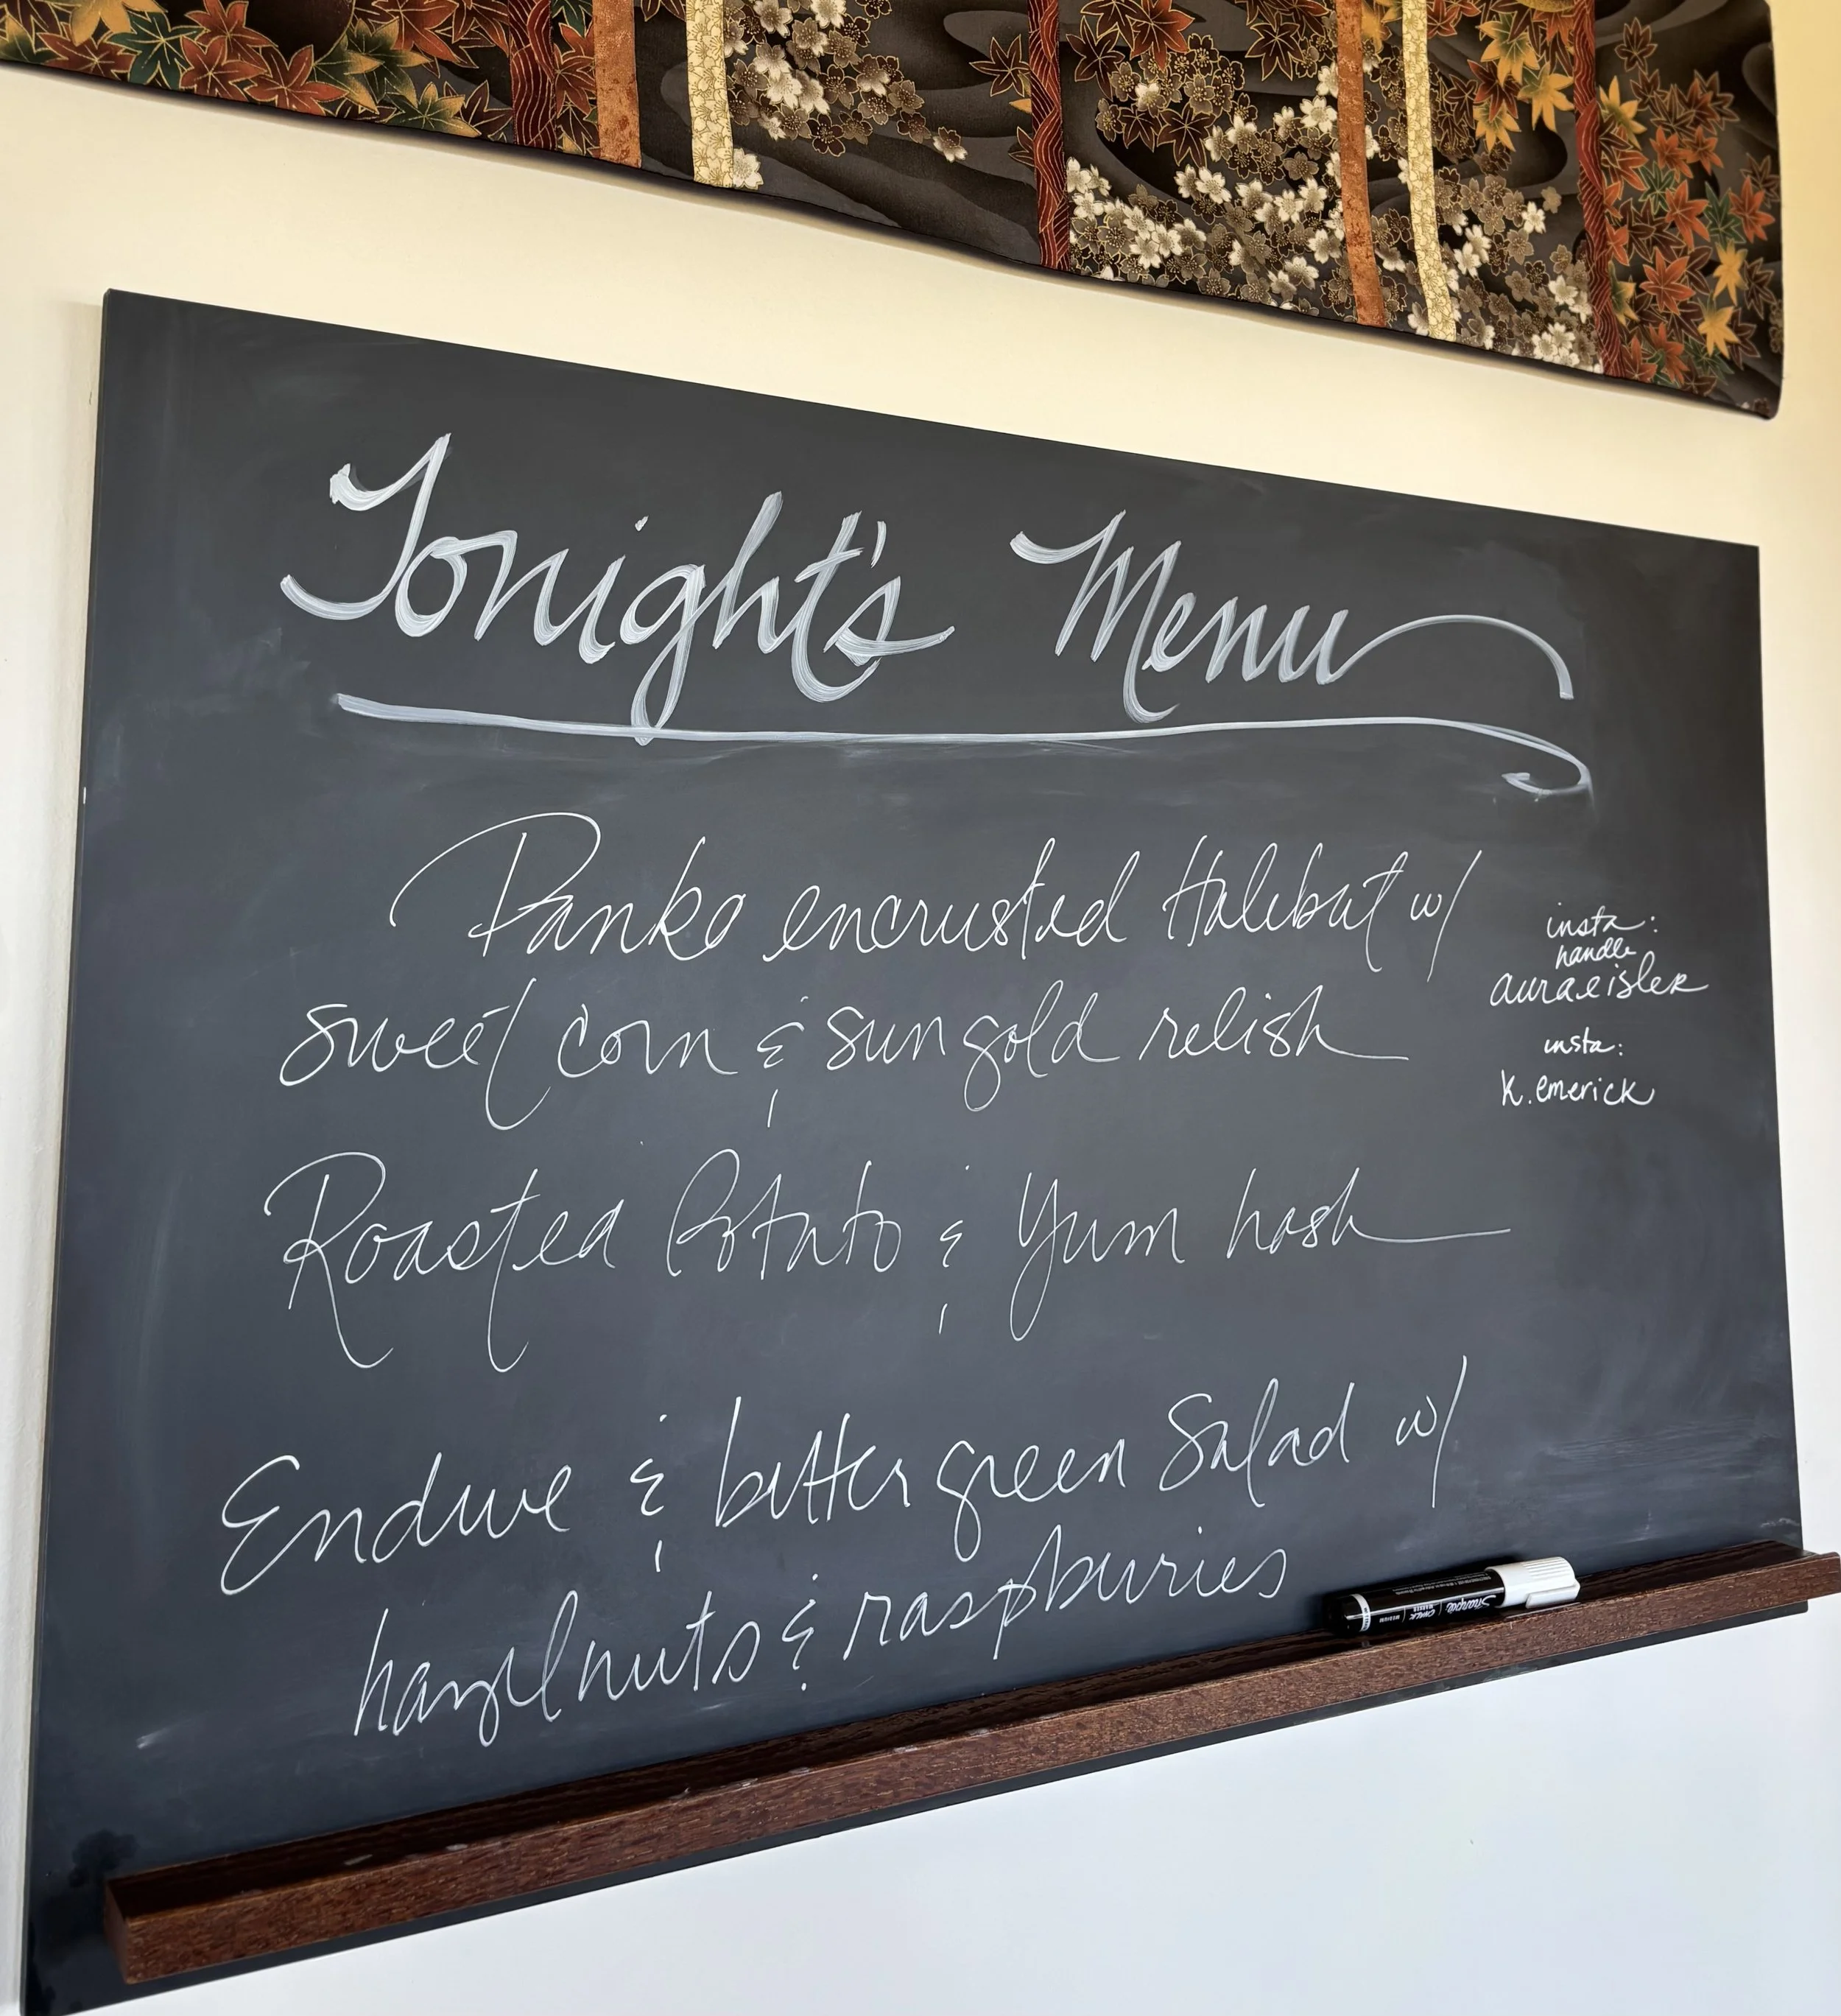 Tonight's Menu
Panko encrusted Halibut w/
sweet corn & sungold relish
Roasted Potato & Yum hash
Endive & bitter green Salad w/
hazelnuts & raspburies
insta:
handle
auraeisler
insta:
k.emerick
Sharpie
CHALK MARKER
MEDIUM